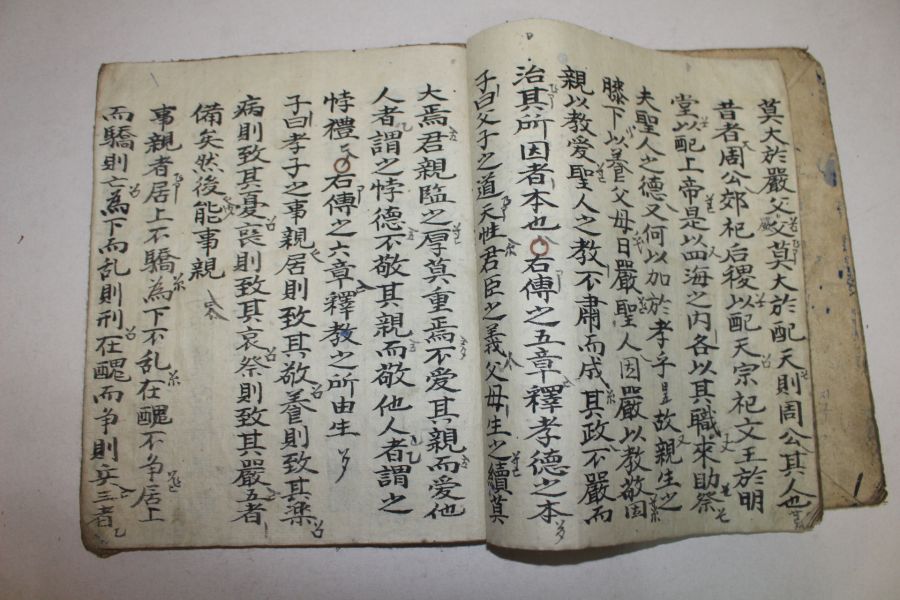 莫大於嚴父父莫大於配天則周公其人也
昔者周公郊祀后稷以配天宗祀文王於明
堂以配上帝是以四海之内各以其職來助祭
夫聖人之德又何以加於孝乎是故親生之
膝下以養父母日嚴聖人因嚴以教敬因
親以教爱聖人之教不肅而成其政不嚴而
治其所因者本也○右傳之五章釋孝德之本
子曰父子之道天性君臣之義父母生之續莫
大焉君親臨之厚莫重焉不爱其親而爱他
人者謂之悖德不敬其親而敬他人者謂之
悖禮○右傳之六章釋教之所由生
子曰孝子之事親居則致其敬養則致其楽
病則致其憂丧則致其哀祭則致其嚴五者
備矣然後能事親
事親者居上不驕為下不乱在醜不争居上
而驕則亡為下而乱則刑在醜而争則兵三者